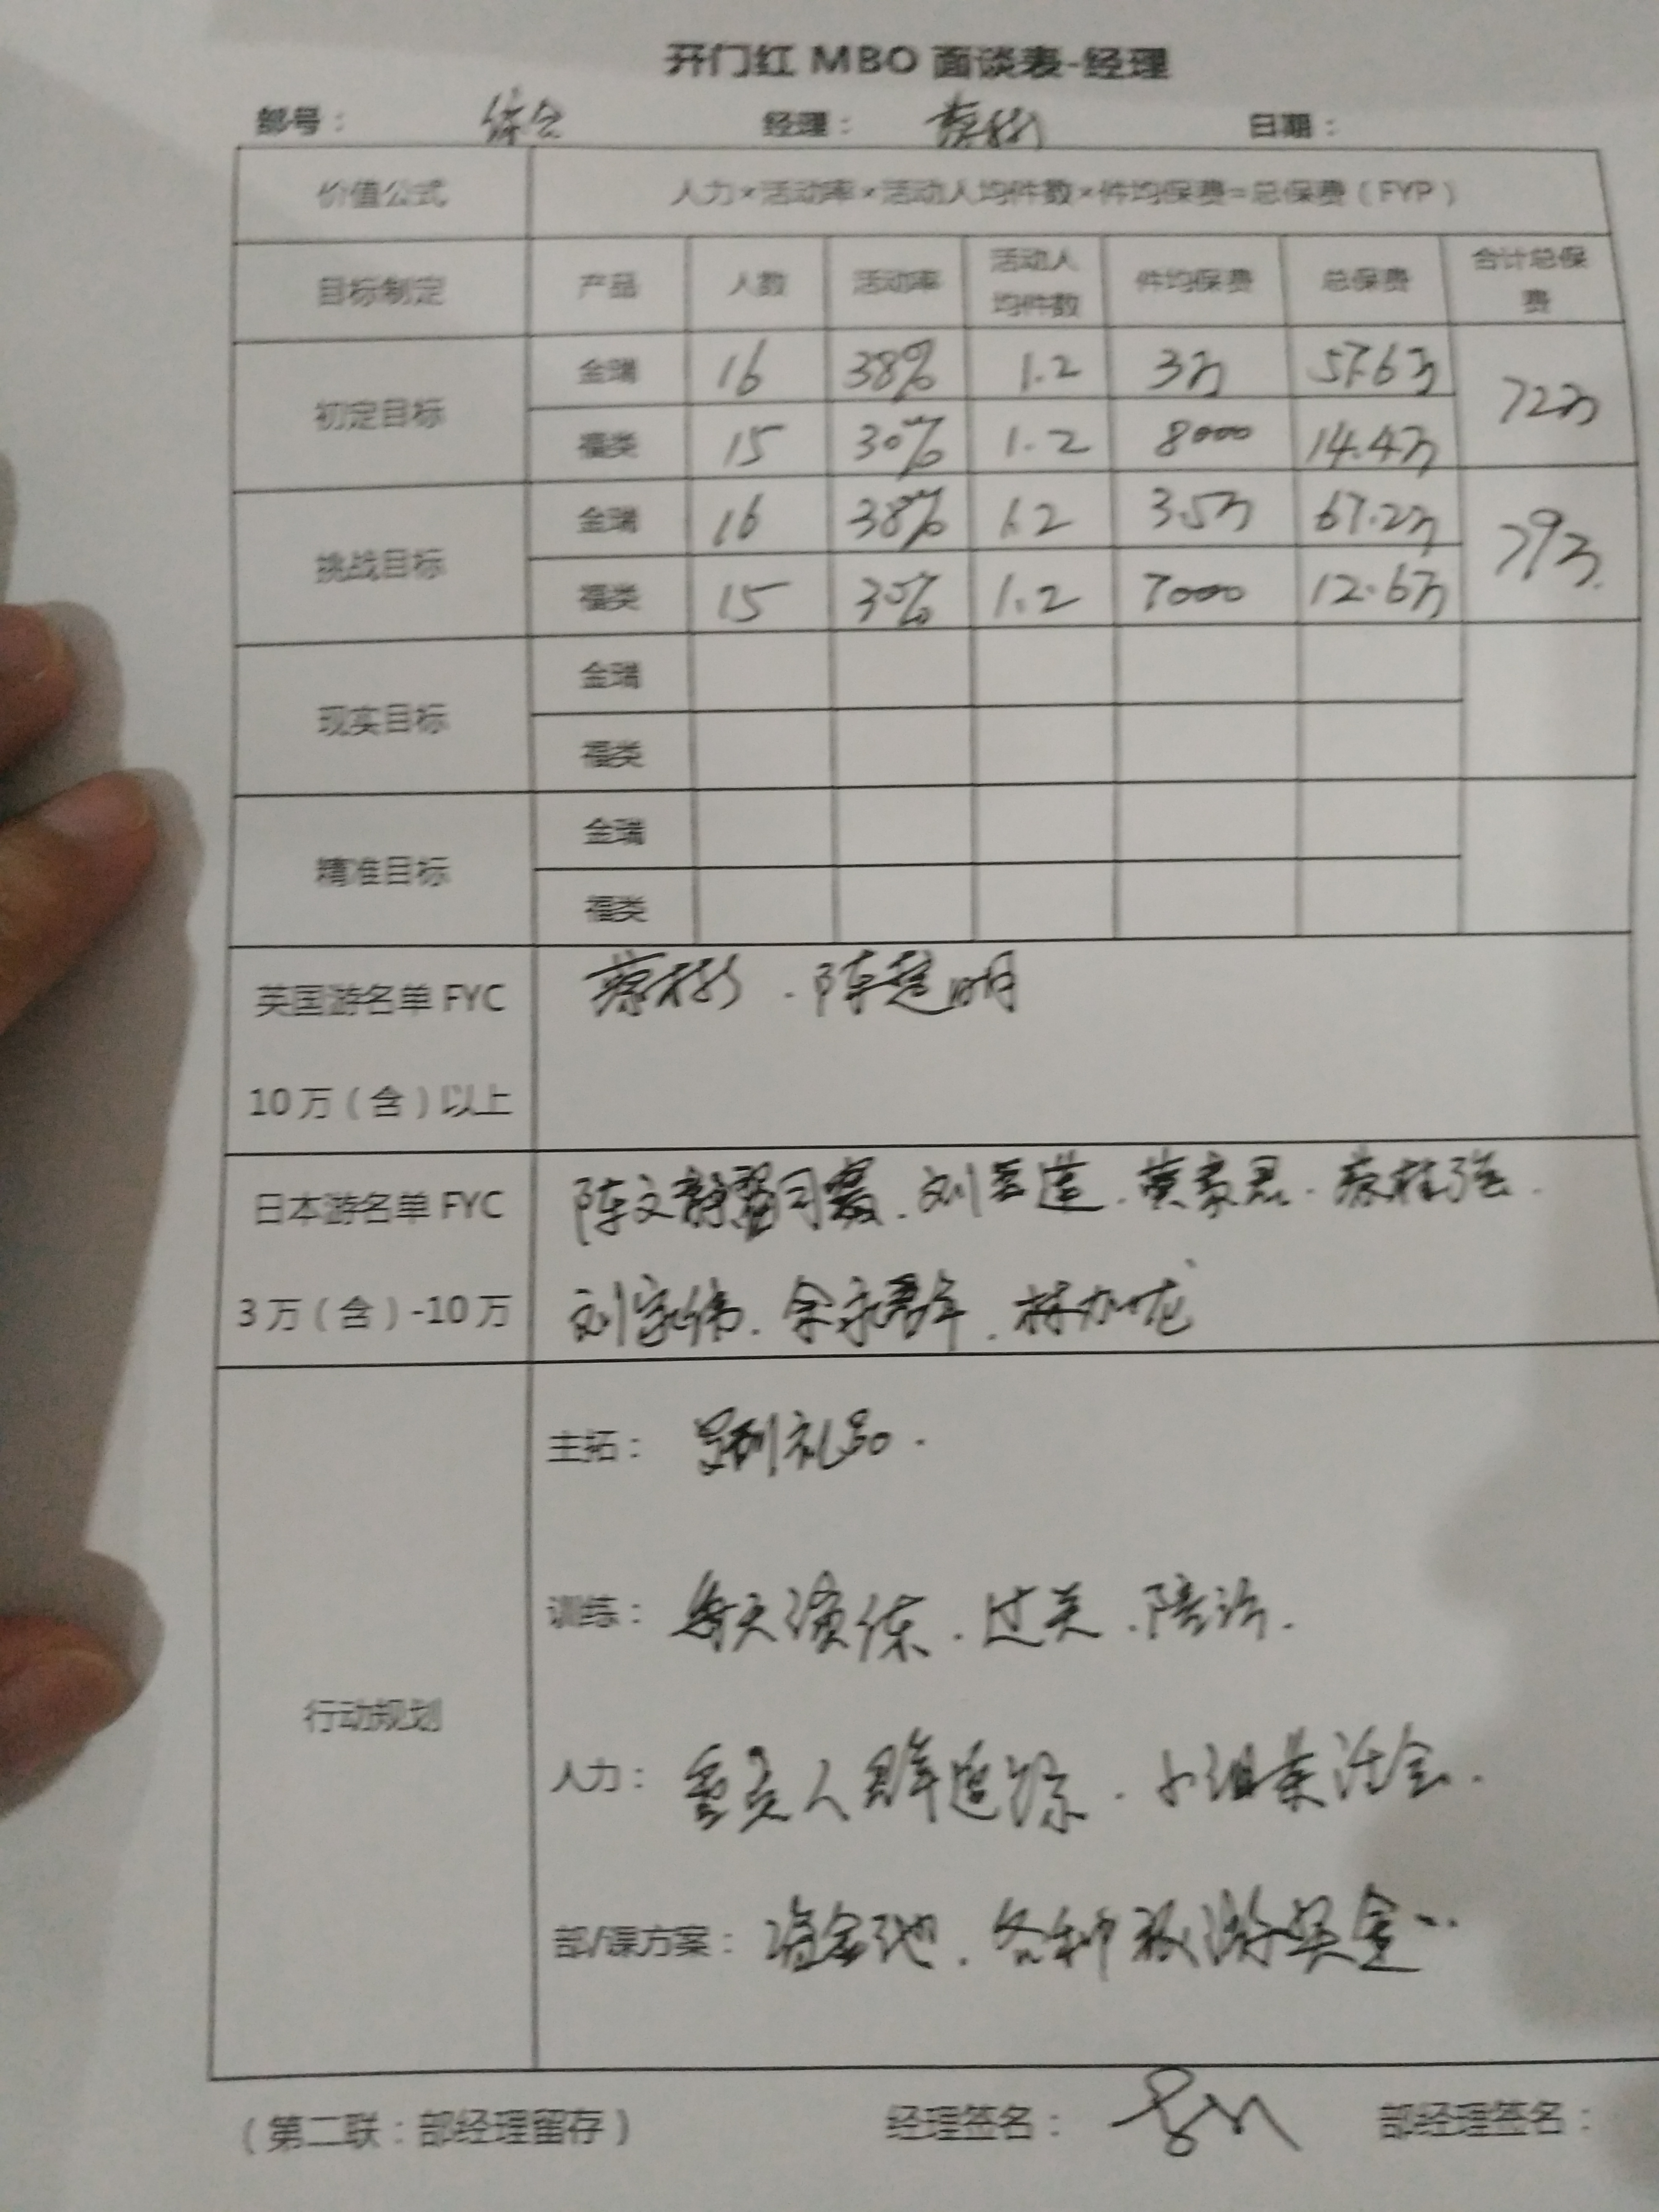 开门红 MBO 面谈表-经理
部号： 经理： 日期：
价值公式 人力×活动率×活动人均件数×件均保费=总保费（FYP）
目标制定 产品 人数 活动率 活动人均件数 件均保费 总保费 合计总保费
初定目标 金瑞 16 38% 1.2 3万 57.6万 72万
福类 15 30% 1.2 8000 14.4万
挑战目标 金瑞 16 38% 1.2 3.5万 67.2万 79万.
福类 15 30% 1.2 7000 12.6万
现实目标 金瑞
福类
精准目标 金瑞
福类
英国游名单 FYC 陈楚明
10万（含）以上
日本游名单 FYC 陈文静 . 刘 莲 . 黄 君 . 蔡桂强 .
3万（含）-10万 刘家伟 . 余 . 林加龙
行动规划
主拓： 礼品 .
训练： 每天演练 . 过关 . 陪访 .
人力： 重点人群追踪 . 小组 活会 .
部/课方案： 各种 奖金
（第二联：部经理留存） 经理签名： 部经理签名：